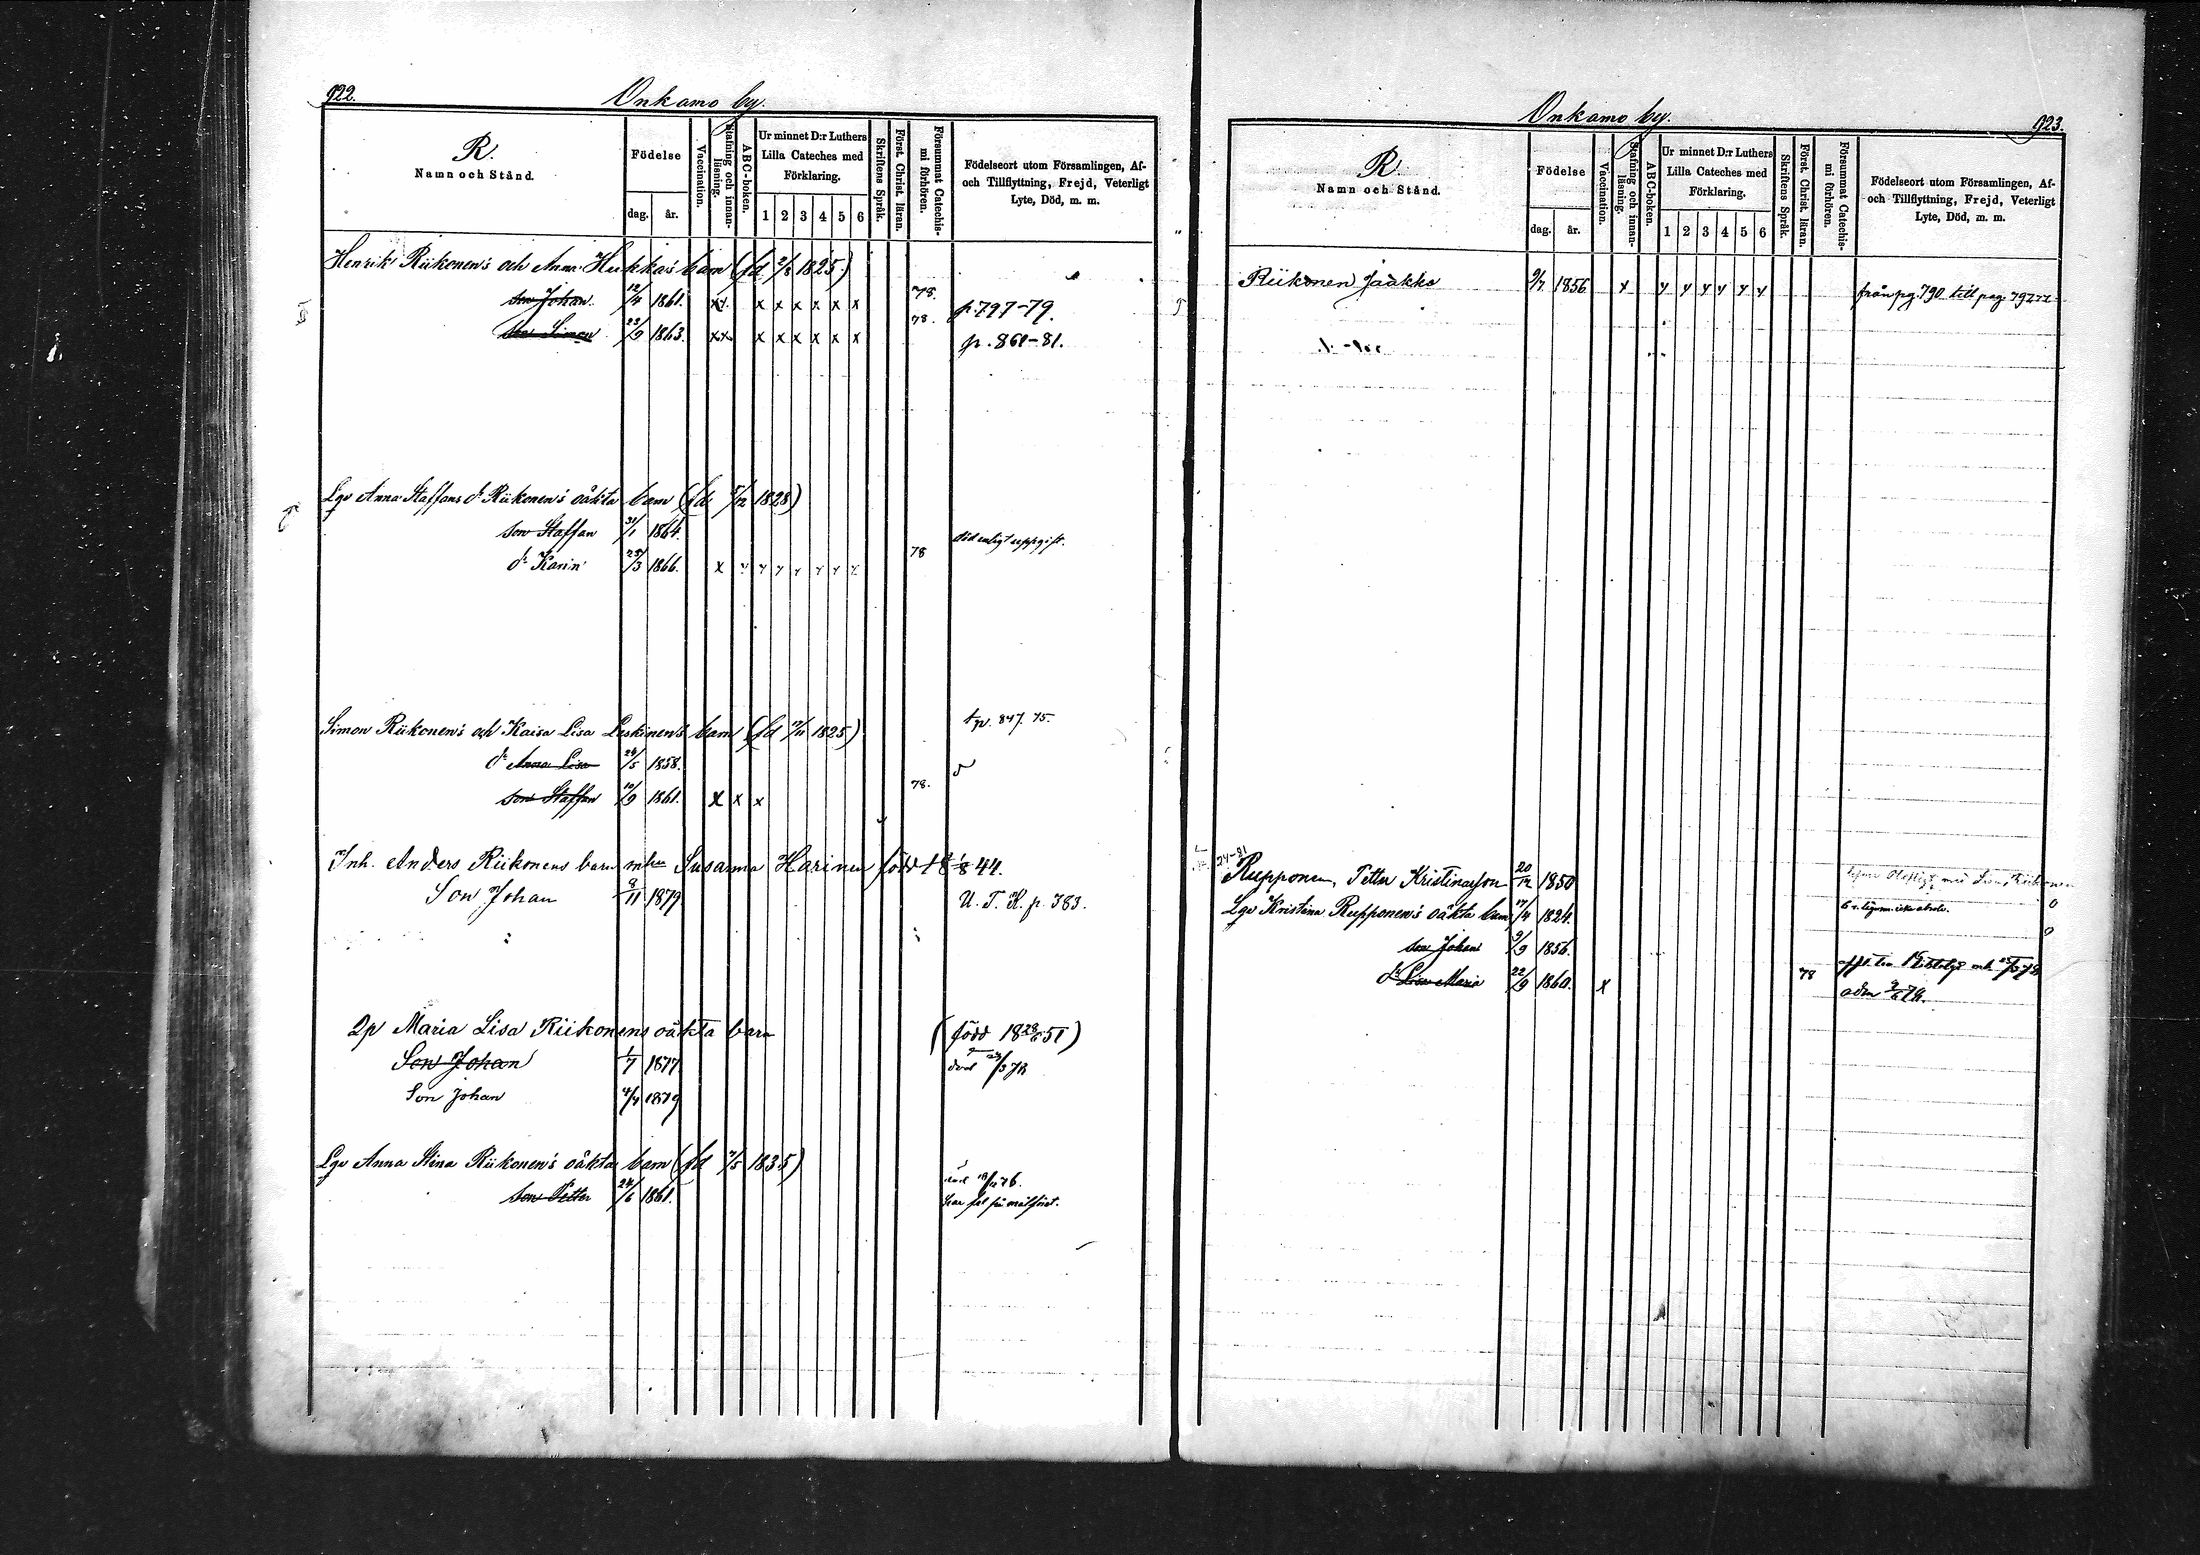 922.
Onkamo by.
R.
Namn och Stånd.
Födelse
dag. år.
Vaccination.
Stafning och innanläsning.
ABC-boken.
Ur minnet D:r Luthers
Lilla Cateches med
Förklaring.
1 2 3 4 5 6
Skriftens Språk.
Först. Christ. läran.
Försummat Catechismi förhören.
Födelseort utom Församlingen, Af-
och Tillflyttning, Frejd, Veterligt
Lyte, Död, m. m.
Henrik Riikonen's och Anna Hukka's barn (fd 2/8 1825)
son Johan 12/4 1861. x x x x x x x x 78. p. 797-79.
son Simon 23/9 1863. x x x x x x x x 78. p. 861-81.
Lqv Anna Staffans dr Riikonen's oäkta barn (fd 5/12 1828)
son Staffan 31/1 1864. död enligt uppgift.
dr Karin 25/3 1866. x 78
Simon Riikonen's och Kaisa Lisa Leskinen's barn (fd 1825)
t p. 847. 75.
dr Anna Lisa 24/5 1858.
son Staffan 10/9 1861. x x x 78.
Inh. Anders Riikonens barn m hu Susanna Harinen född 18 1/8 44.
Son Johan 9/11 1879 U. T. K. p. 383.
Qp Maria Lisa Riikonens oäkta barn (född 18 28/6 51)
Son Johan 1/7 1877 död /3 78
Son Johan 4/4 1879
Lqv Anna Stina Riikonen's oäkta barn (fd /5 1835)
son Petter 24/6 1861. död 76.
har fel på målföret.
Onkamo by.
923.
R.
Namn och Stånd.
Födelse
dag. år.
Vaccination.
Stafning och innanläsning.
ABC-boken.
Ur minnet D:r Luthers
Lilla Cateches med
Förklaring.
1 2 3 4 5 6
Skriftens Språk.
Först. Christ. läran.
Försummat Catechismi förhören.
Födelseort utom Församlingen, Af-
och Tillflyttning, Frejd, Veterligt
Lyte, Död, m. m.
Riikonen Jaakko 9/7 1856 från pg. 790 till pag. 792
24-81
Rupponen, Petter Kristinasson 20/12 1850
Lqv Kristina Rupponen's oäkta barn 17/4 1824.
son Johan 9/9 1856.
dr Lisa Maria 22/9 1860. x 78